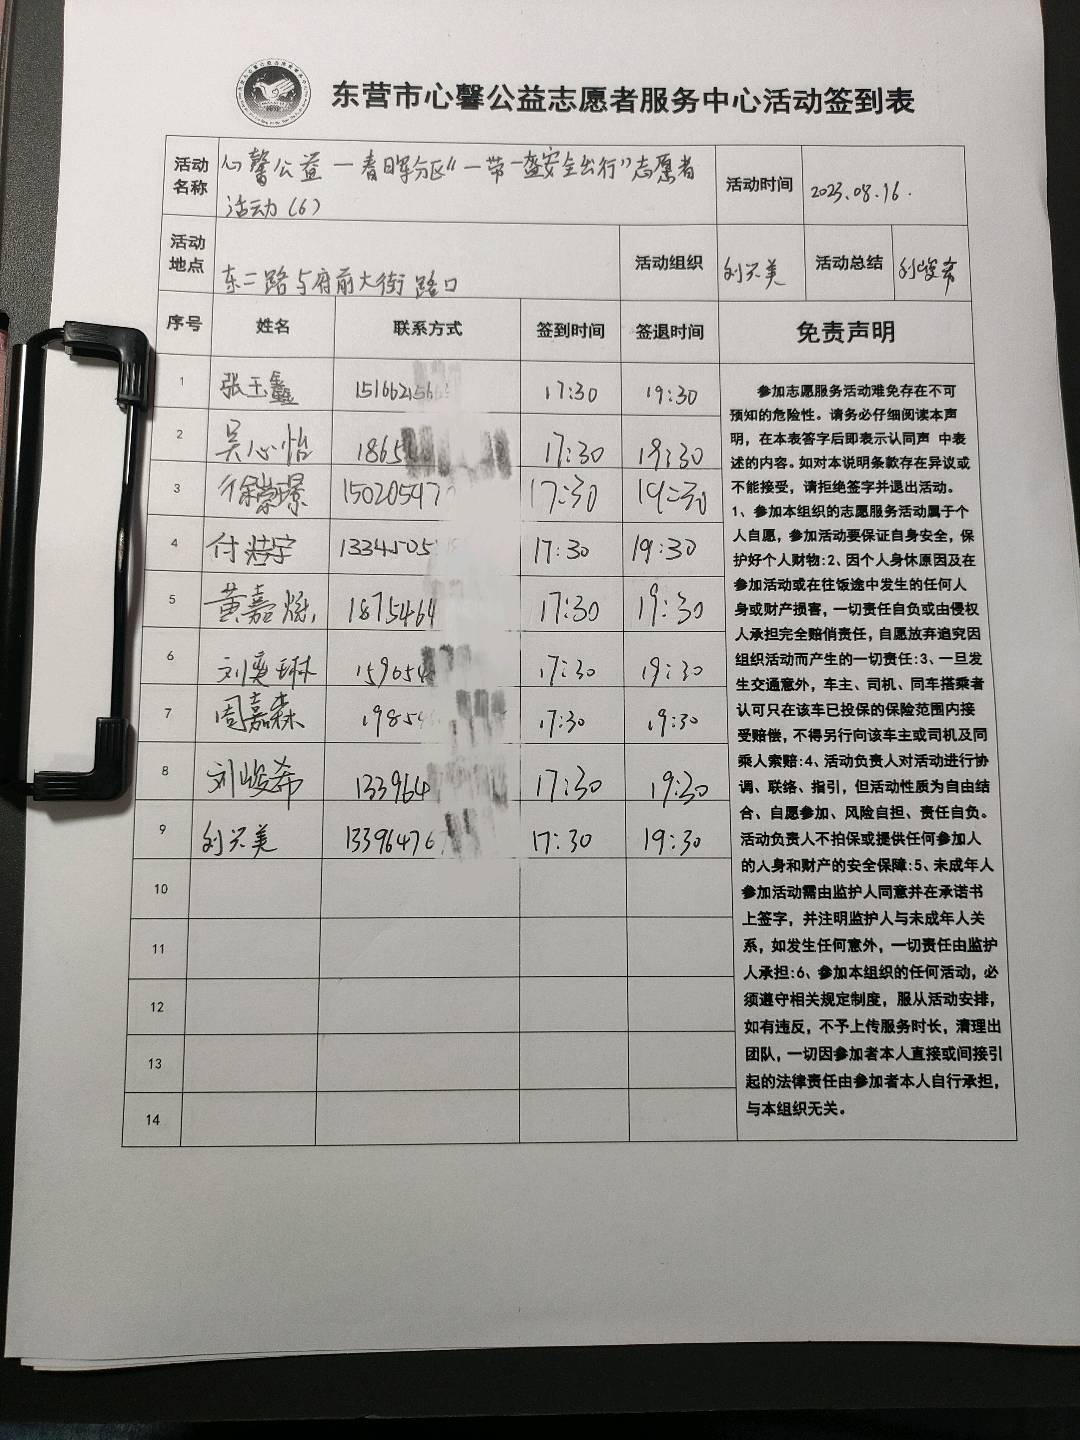 东营市心馨公益志愿者服务中心活动签到表
活动名称 心馨公益一春晖分区“一带一盔安全出行”志愿者活动(6) 活动时间 2023.08.16.
活动地点 东二路与府前大街路口 活动组织 刘兴美 活动总结 刘峻希
序号 姓名 联系方式 签到时间 签退时间 免责声明
1 张玉鑫 17:30 19:30
2 吴心怡 1865 17:30 19:30
3 15020547 17:30 19:30
4 1334505 17:30 19:30
5 黄嘉 1875464 17:30 19:30
6 刘奕琳 159654 17:30 19:30
7 周嘉森 19854 17:30 19:30
8 刘峻希 133964 17:30 19:30
9 刘兴美 13396476 17:30 19:30
10
11
12
13
14
参加志愿服务活动难免存在不可
预知的危险性。请务必仔细阅读本声
明，在本表答字后即表示认同声 中表
述的内容。如对本说明条款存在异议或
不能接受，请拒绝签字并退出活动。
1、参加本组织的志愿服务活动属于个
人自愿，参加活动要保证自身安全，保
护好个人财物:2、因个人身休原因及在
参加活动或在往饭途中发生的任何人
身或财产损害，一切责任自负或由侵权
人承担完全赔俏责任，自愿放弃追究因
组织活动而产生的一切责任:3、一旦发
生交通意外，车主、司机、同车搭乘者
认可只在该车已投保的保险范围内接
受赔偿，不得另行向该车主或司机及同
乘人索赔:4、活动负责人对活动进行协
调、联络、指引，但活动性质为自由结
合、自愿参加、风险自担、责任自负。
活动负责人不拍保或提供任何参加人
的人身和财产的安全保障:5、未成年人
参加活动需由监护人同意并在承诺书
上签字，并注明监护人与未成年人关
系，如发生任何意外，一切责任由监护
人承担:6、参加本组织的任何活动，必
须遵守相关规定制度，服从活动安排，
如有违反，不予上传服务时长，清理出
团队，一切因参加者本人直接或间接引
起的法律责任由参加者本人自行承担，
与本组织无关。